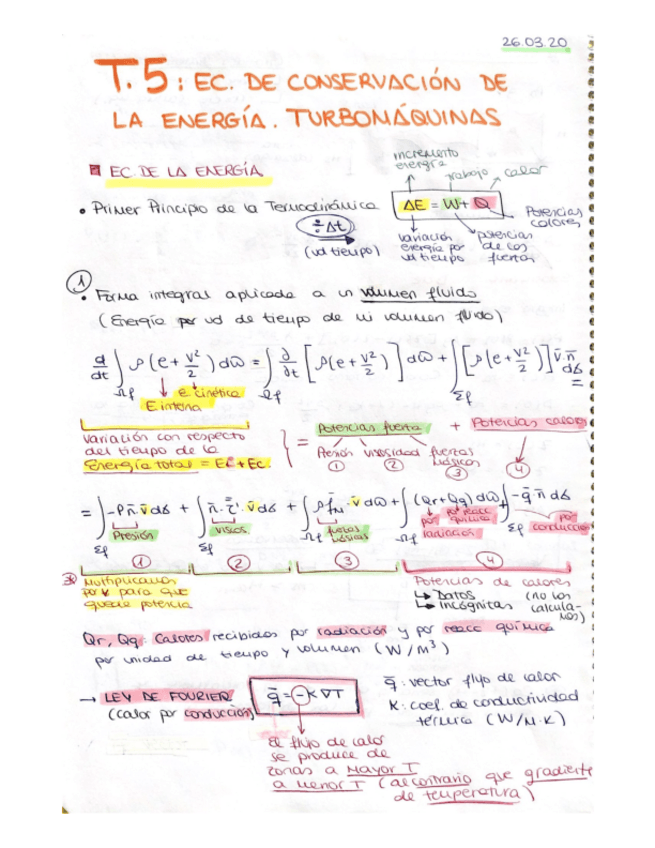 26.03.20
T.5: EC. DE CONSERVACIÓN DE
LA ENERGÍA. TURBOMÁQUINAS
EC. DE LA ENERGÍA
incremento
energía
trabajo
calor
• Primer Principio de la Termodinámica
ΔE = W + Q
÷ Δt
(ud tiempo)
variación
energía por
ud tiempo
potencias
de las
fuerzas
Potencias
calores
1
• Forma integral aplicada a un volumen fluido
(Energía por ud de tiempo de mi volumen fluido)
d/dt ∫Ωf ρ(e + v²/2) dω = ∫Ωf ∂/∂t [ρ(e + v²/2)] dω + ∫Σf [ρ(e + v²/2)] v̄·n̄ dσ =
E interna
E cinética
variación con respecto
del tiempo de la
Energía total = Ei + Ec.
= Potencias fuerza + Potencias calores
Presión 1
viscosidad 2
fuerzas
másicas 3
4
= ∫Σf -P n̄·v̄ dσ + ∫Σf n̄·τ̄'·v̄ dσ + ∫Ωf ρ f̄m·v̄ dω + ∫Ωf (Qr + Qq) dω + ∫Σf -q̄·n̄ dσ
Presión
viscos.
fuerzas
másicas
por
radiación
por reacc
química
por
conducción
1 2 3 4
Multiplicamos
por v para que
quede potencia
Potencias de calores
↳ Datos (no los
↳ Incógnitas calcula-
mos)
Qr, Qq: Calores recibidos por radiación y por reacc química
por unidad de tiempo y volumen (W/m³)
→ LEY DE FOURIER
(calor por conducción)
q̄ = -K ∇T
q̄: vector flujo de calor
K: coef. de conductividad
térmica (W/m·K)
El flujo de calor
se produce de
zonas a Mayor T
a menor T (al contrario que gradiente
de temperatura)